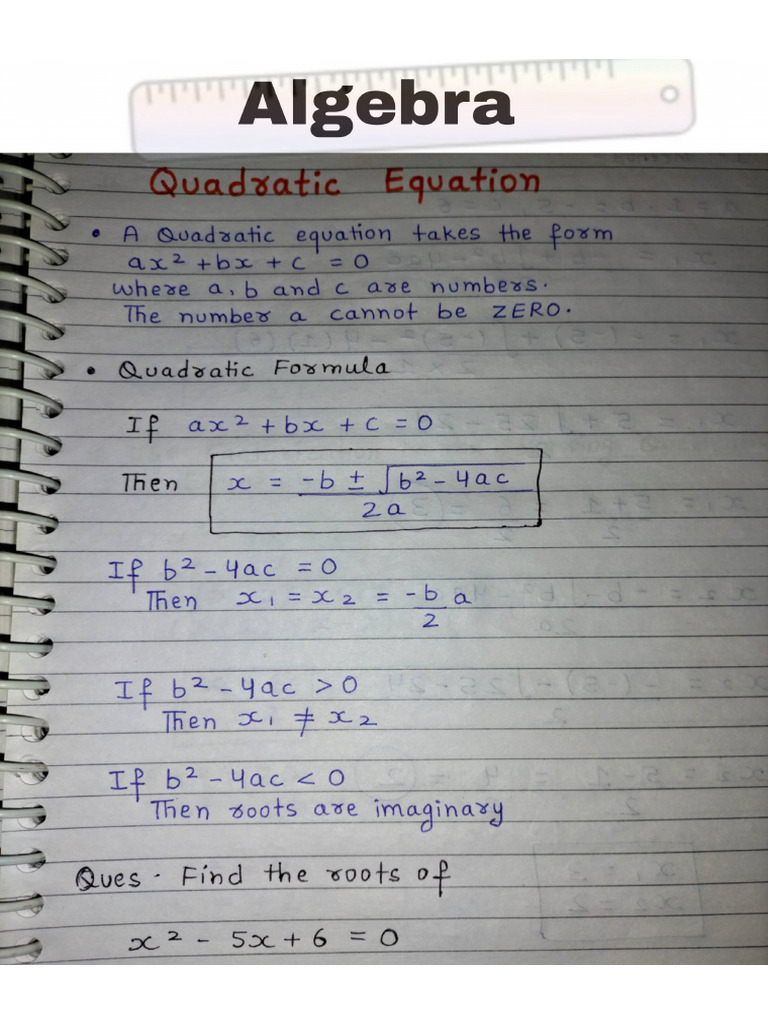 Algebra
Quadratic Equation
• A Quadratic equation takes the form
ax² + bx + c = 0
where a, b and c are numbers.
The number a cannot be ZERO.
• Quadratic Formula
If ax² + bx + c = 0
Then x = -b ± √b² - 4ac
2a
If b² - 4ac = 0
Then x₁ = x₂ = -b a
2
If b² - 4ac > 0
Then x₁ ≠ x₂
If b² - 4ac < 0
Then roots are imaginary
Ques. Find the roots of
x² - 5x + 6 = 0